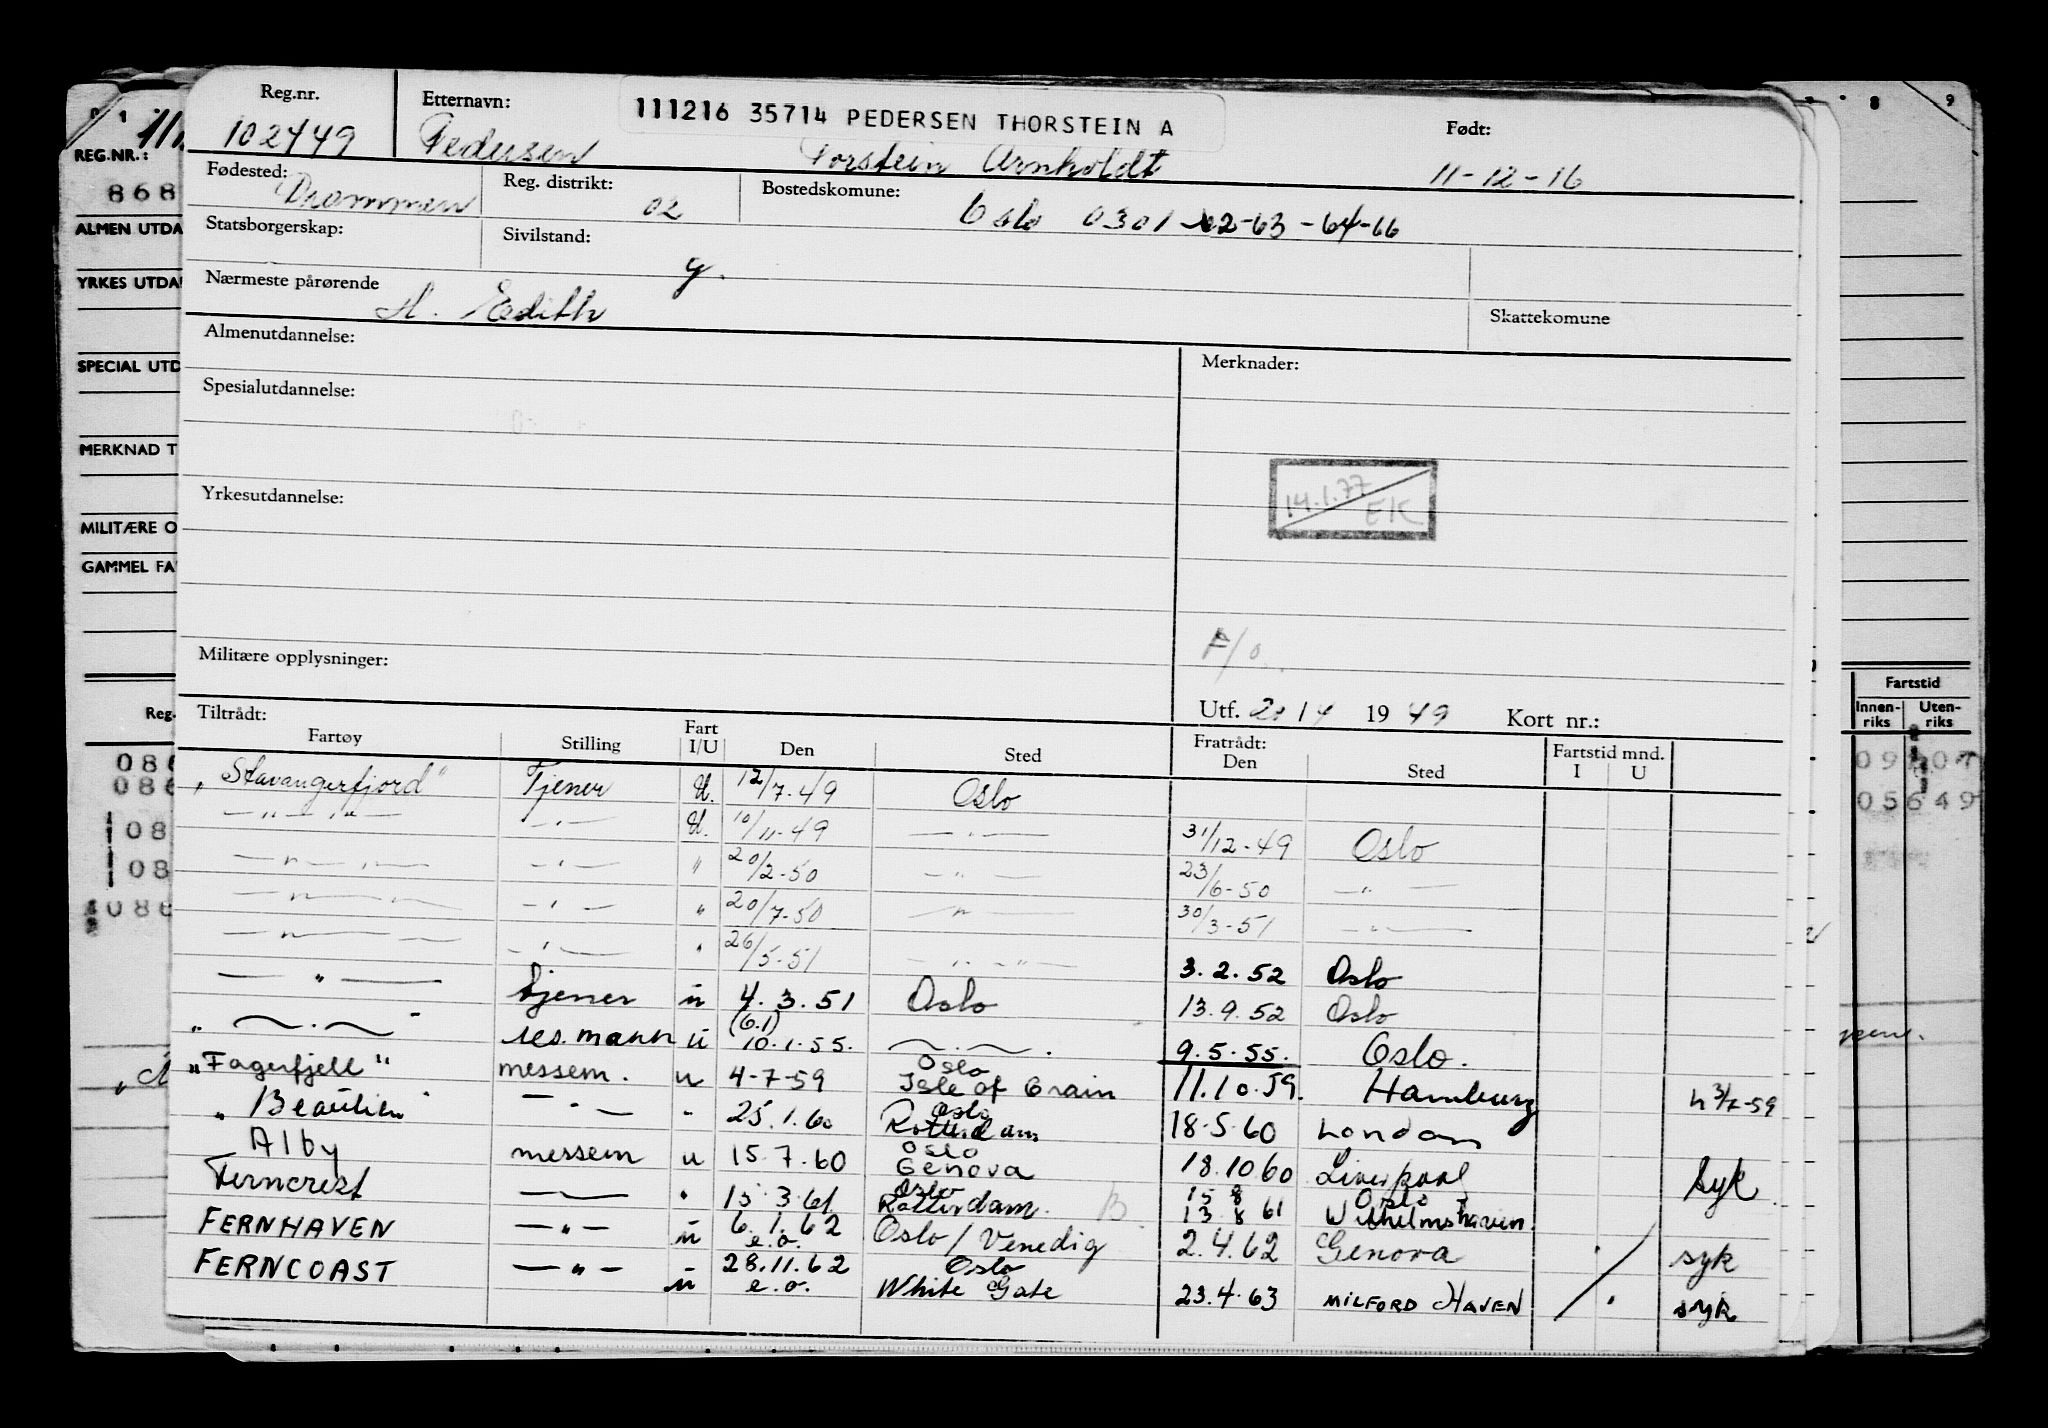 Reg.nr. Etternavn: 111216 35714 PEDERSEN THORSTEIN A Født:
102449 Pedersen Torstein Arnholdt 11-12-16
Fødested: Drammen Reg. distrikt: 02 Bostedskomune: Oslo 0301 62-63-64-66
Statsborgerskap: Sivilstand: g.
Nærmeste pårørende H. Edith Skattekomune
Almenutdannelse: Merknader:
Spesialutdannelse:
14.1.77 EK
Yrkesutdannelse:
F/o.
Militære opplysninger:
Tiltrådt: Utf. 1949 Kort nr.:
Fartøy Stilling Fart I/U Den Sted Fratrådt: Den Sted Fartstid mnd. I U
"Stavangerfjord" Tjener U. 12/7-49 Oslo
— " — " — — " — U. 10/11-49 — " — 31/12-49 Oslo
— " — " — — " — " 20/2-50 — " — 23/6-50 — " —
— " — " — — " — " 20/7-50 — " — 30/3-51 — " —
— " — — " — " 26/5-51 — " — " — 3.2.52 Oslo
— " — tjener u 4.3.51 Oslo 13.9.52 Oslo
" — . — " res.mann u (6.1) 10.1.55. — . — . 9.5.55. Oslo.
"Fagerfjell" messem. u 4-7-59 Oslo Isle of Grain 11.10.59. Hamburg
" — " — - 25.1.60 Oslo Rotterdam 18-5-60 London
Alby messem u 15.7.60 Oslo Genova 18.10 60 Liverpool syk
Ferncrest — " 15.3.61 Oslo Rotterdam. B 15 8 13.8 61 Oslo Wilhelmshaven.
FERNHAVEN — " — u 6.1.62 e.o. Oslo / Venedig 2.4.62 Genova syk
FERNCOAST — " — u 28.11.62 e.o. Oslo White Gate 23.4.63 MILFORD HAVEN syk
REG.NR.:
868
ALMEN UTDA
YRKES UTDA
SPECIAL UTD
MERKNAD T
MILITÆRE O
GAMMEL FA
Reg.
086
086
08
08
086
8 9
Fartstid
Innen-riks Uten-riks
05649